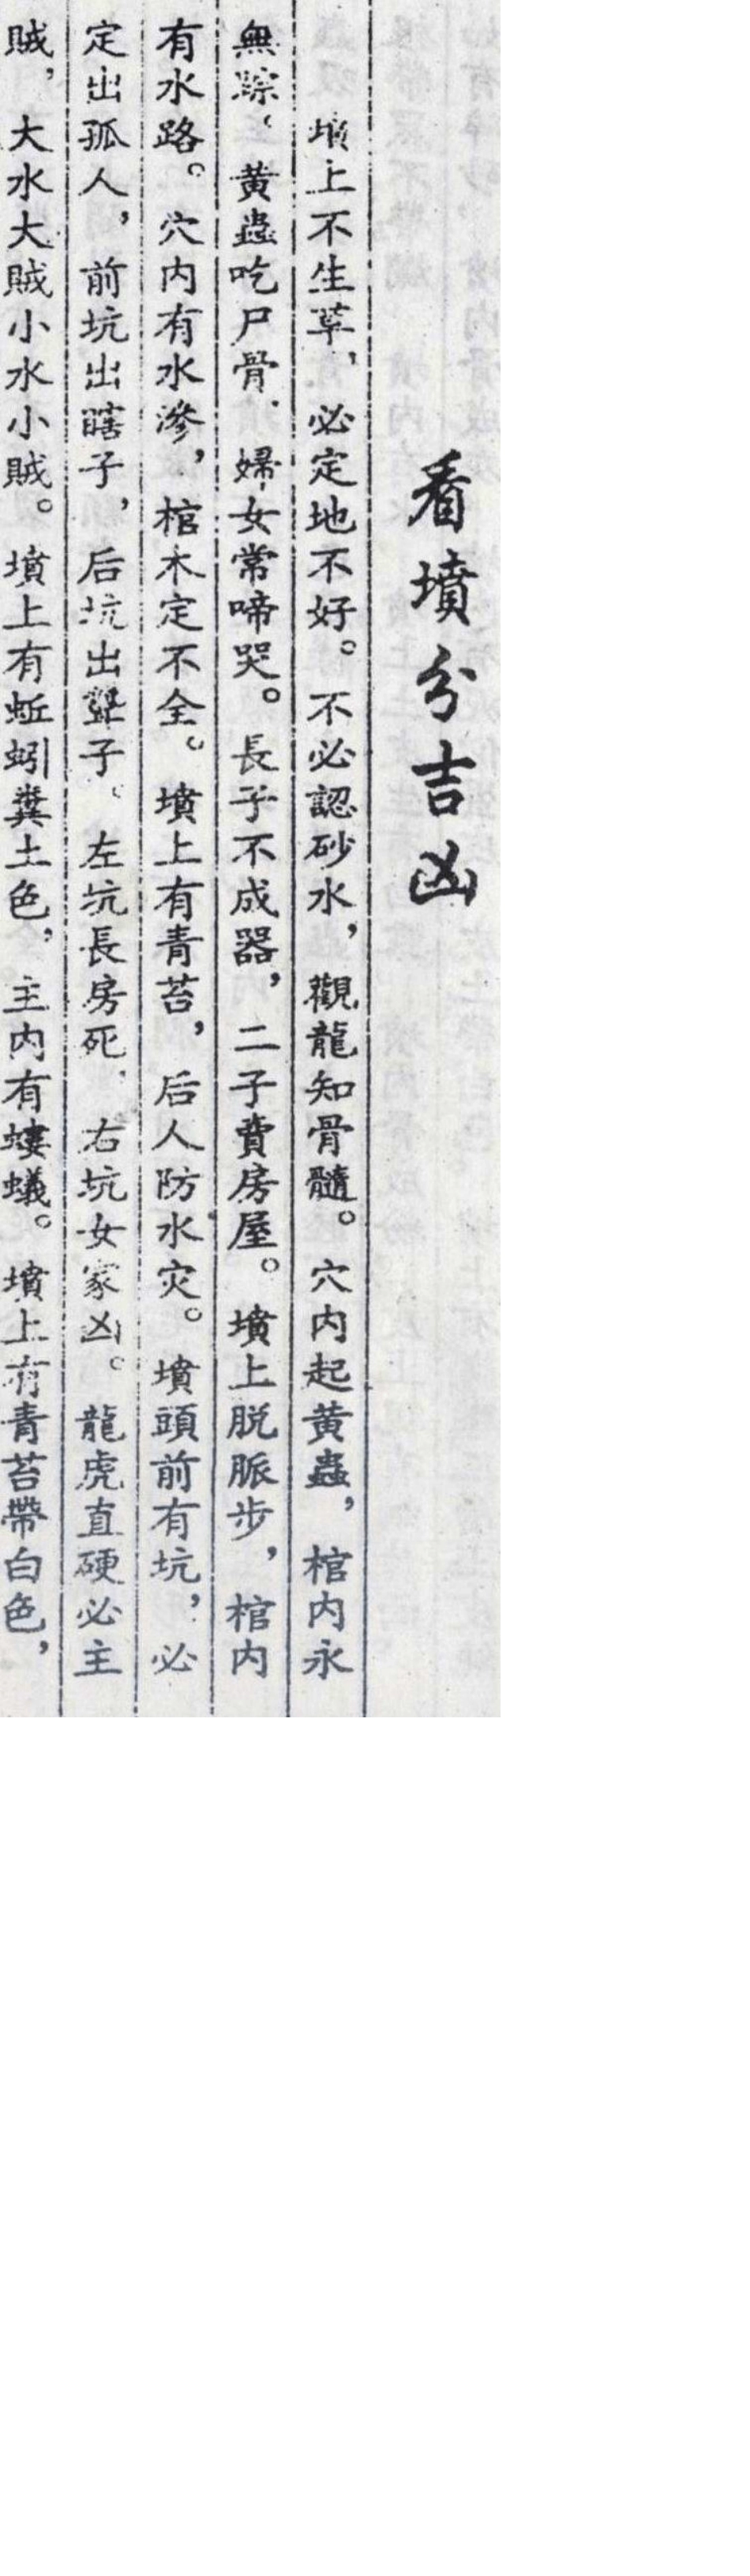 看墳分吉凶
墳上不生草，必定地不好。不必認砂水，觀龍知骨髓。穴内起黄蟲，棺内永
無踪，黄蟲吃尸骨，婦女常啼哭。長子不成器，二子賣房屋。墳上脱脈步，棺内
有水路。穴内有水滲，棺木定不全。墳上有青苔，后人防水灾。墳頭前有坑，必
定出孤人，前坑出瞎子，后坑出聾子。左坑長房死，右坑女家凶。龍虎直硬必主
賊，大水大賊小水小賊。墳上有蚯蚓糞土色，主内有螻蟻。墳上有青苔帶白色，